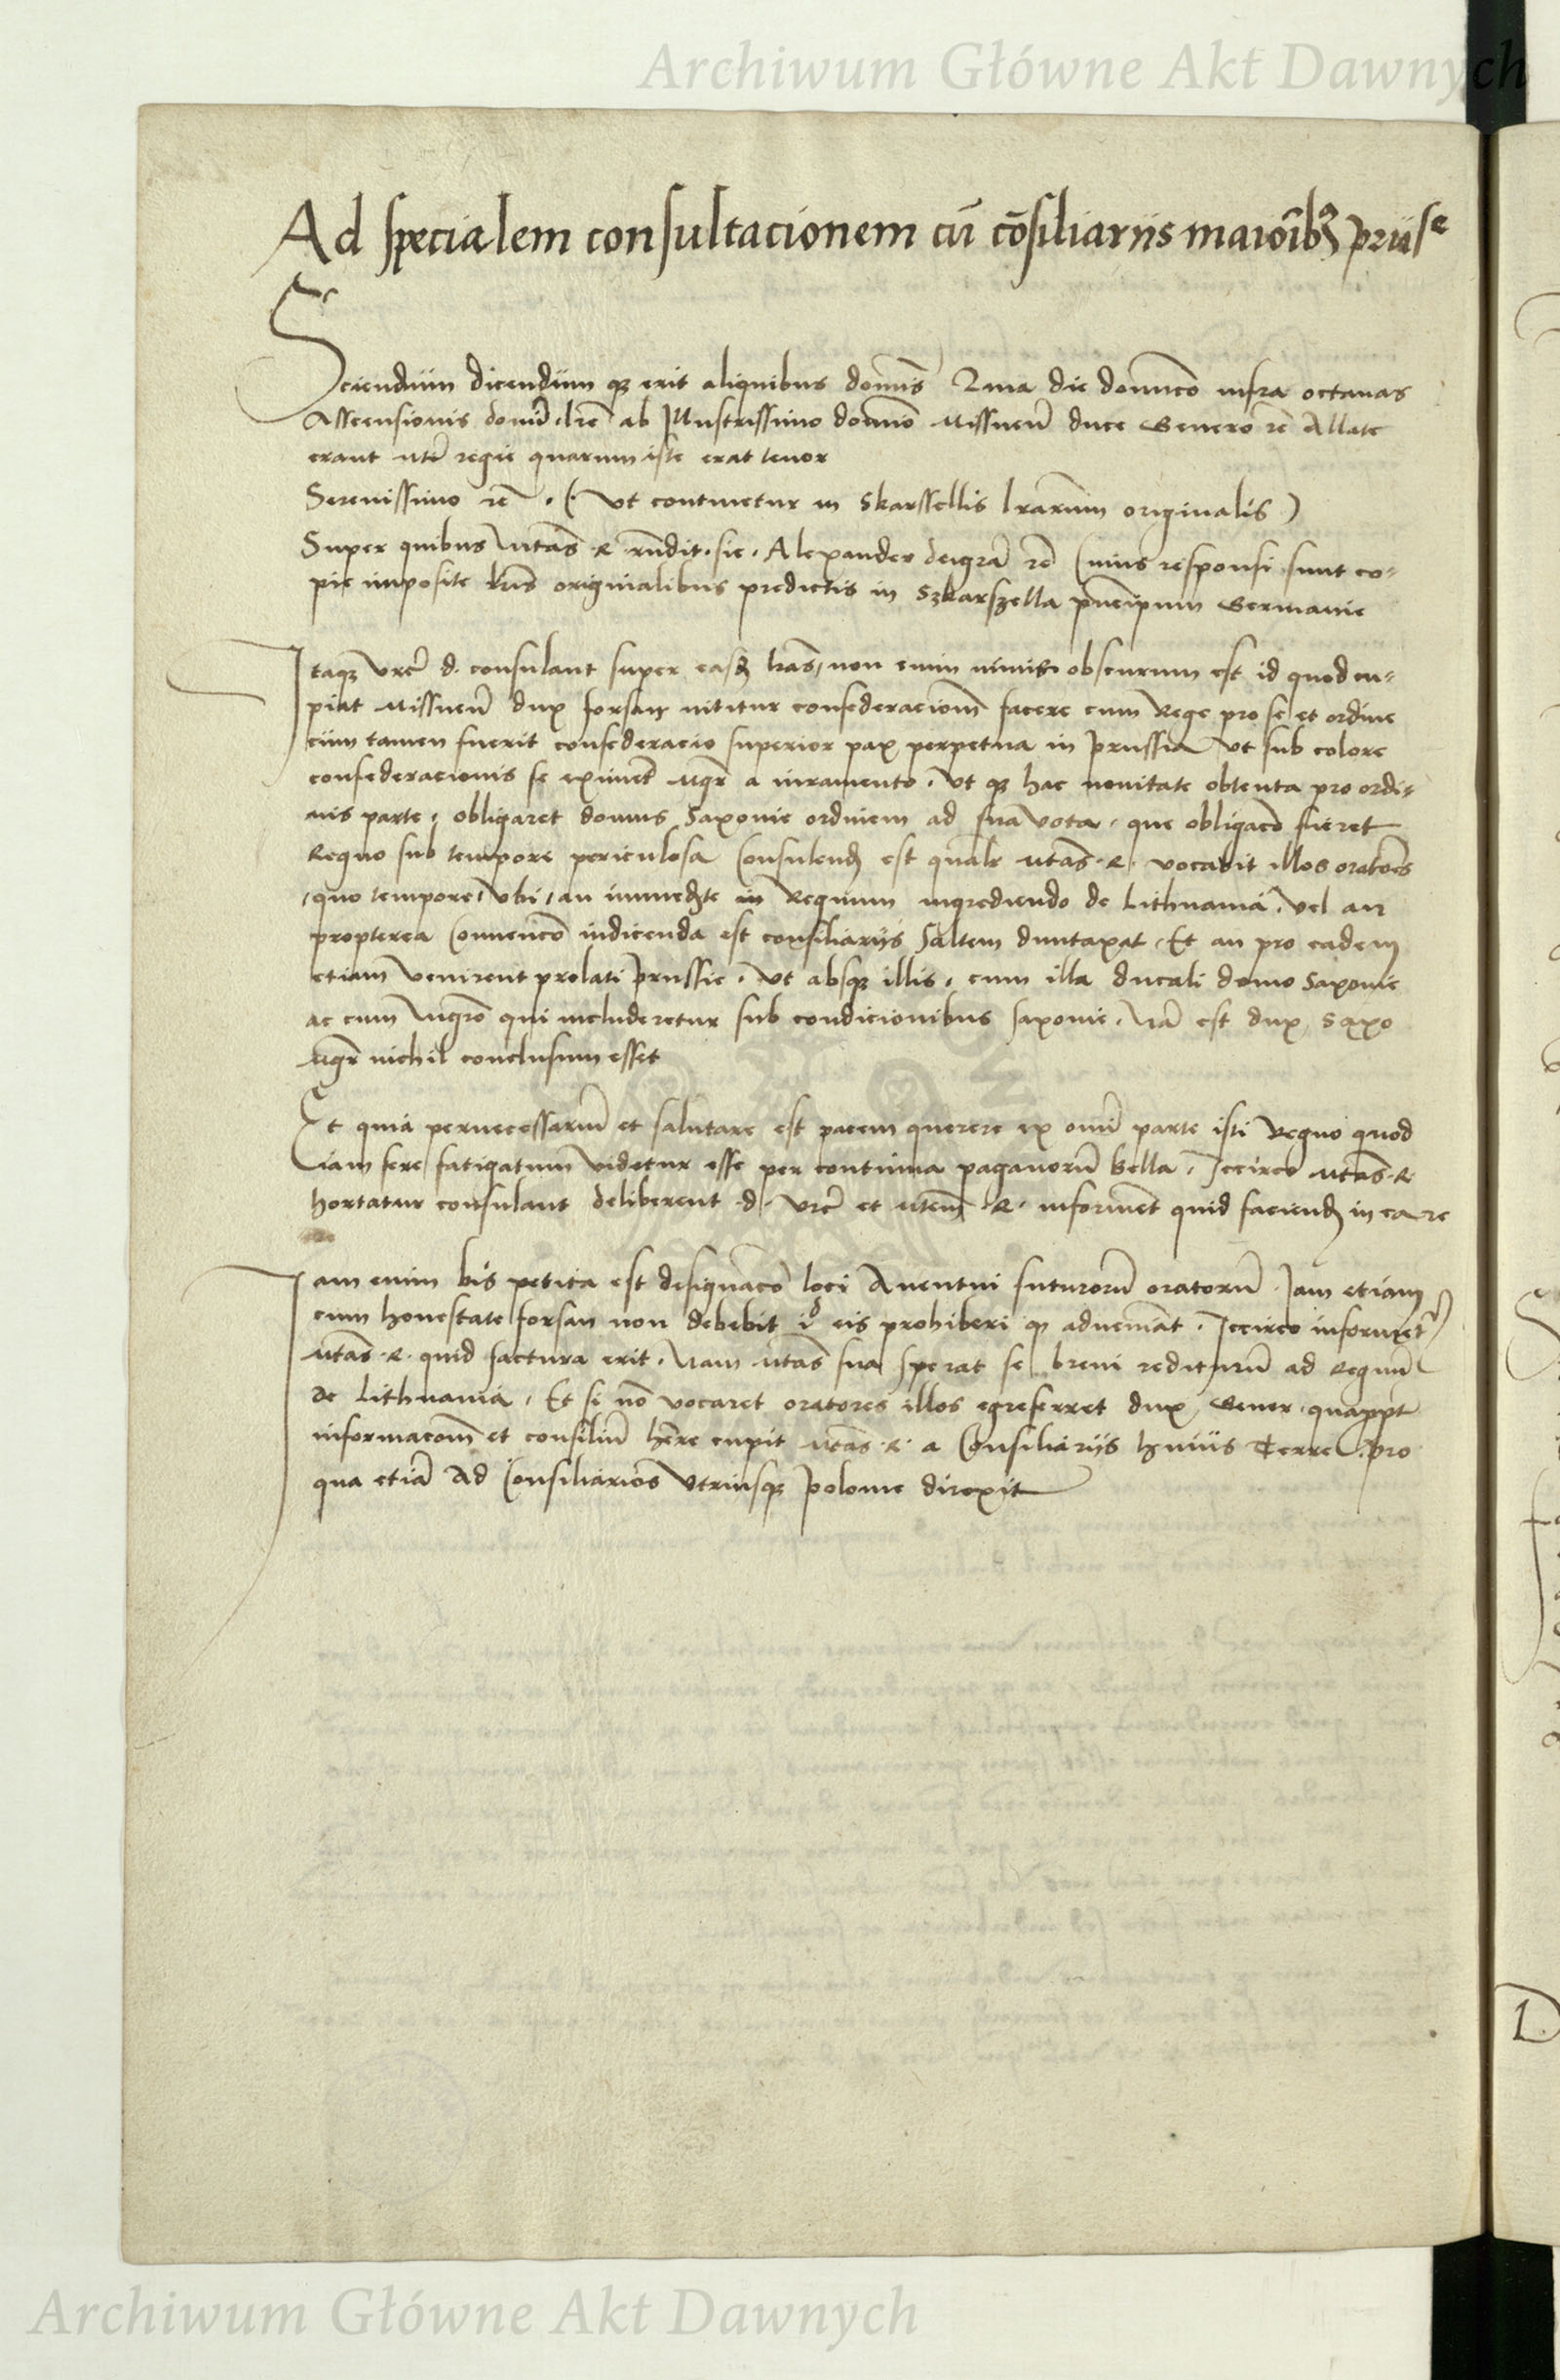 Archiwum Główne Akt Dawnych
Ad specialem consultacionem cū cōsiliariis maioribꝫ prusse
Sciendum dicendum qꝫ erit aliquibus domīs Qma die domīco infra octauas
Ascensionis domī lrē ab Illustrissimo domino Missneñ duce Genero rē Allate
erant mti regie quarum iste erat tenor
Serenissimo rē . (. Ut continetur in Skarssellis lrarum originalis )
Super quibus Mtas . R . rndit . sic . Alexander dei grā rē Cuius responsi sunt co-
pie imposite lris originalibus predictis in Szkarszella principum Germanie
Itaqꝫ vrē d. consulant super easdꝫ lras, non enim nimis obscurum est id quod cu-
piat Missneñ dux forsan nititur confederacionē facere cum Rege pro se et ordine
cum tamen fuerit confederacio superior pax perpetua in prussia Ut sub colore
confederacionis se eximeret Mgr a iuramento . Ut qꝫ hac nouitate obtenta pro ordi-
nis parte, obligaret domus Saxonie ordinem ad sua vota, que obligacō fieret
Regno sub tempore periculosa Consulendꝫ est qualr Mtas . R . vocabit illos oratores
, quo tempore, Ubi, an immediate in Regnum ingrediendo de Lithuania . Vel an
propterea Conuencō indicenda est consiliariis saltem duntaxat, Et an pro eadem
etiam venirent prelati prussie . Ut absqꝫ illis, cum illa ducali domo Saxonie
ac cum Mgrō qui includeretur sub condicionibus saxonie . Nā est dux Saxo
Mgr nichil conclusum esset
Et quia pernecessariū et salutare est pacem querere ex omni parte isti Regno quod
iam fere fatigatum videtur esse per continua paganorū bella, Iccirco Mtas . R
hortatur consulant deliberent . d . vrē et Mtem . R . informēt quid faciendꝫ in ea re
Iam enim bis petita est designacō loci Aduentui futurorū oratorū . Jam etiam
cum honestate forsan non debebit id eis prohiberi qn adueniāt . Iccirco informet
Mtas . R . quid factura erit . Nam Mtas sua sperat se breui rediturū ad Regnū
de Lithuania, Et si nō vocaret oratores illos egreferret dux Gener quappt
informacionē et consiliū hēre cupit Mtas . R . a Consiliariis huius Terre . pro
qua etiā Ad Consiliarios Utriusqꝫ polonie direxit
Archiwum Główne Akt Dawnych